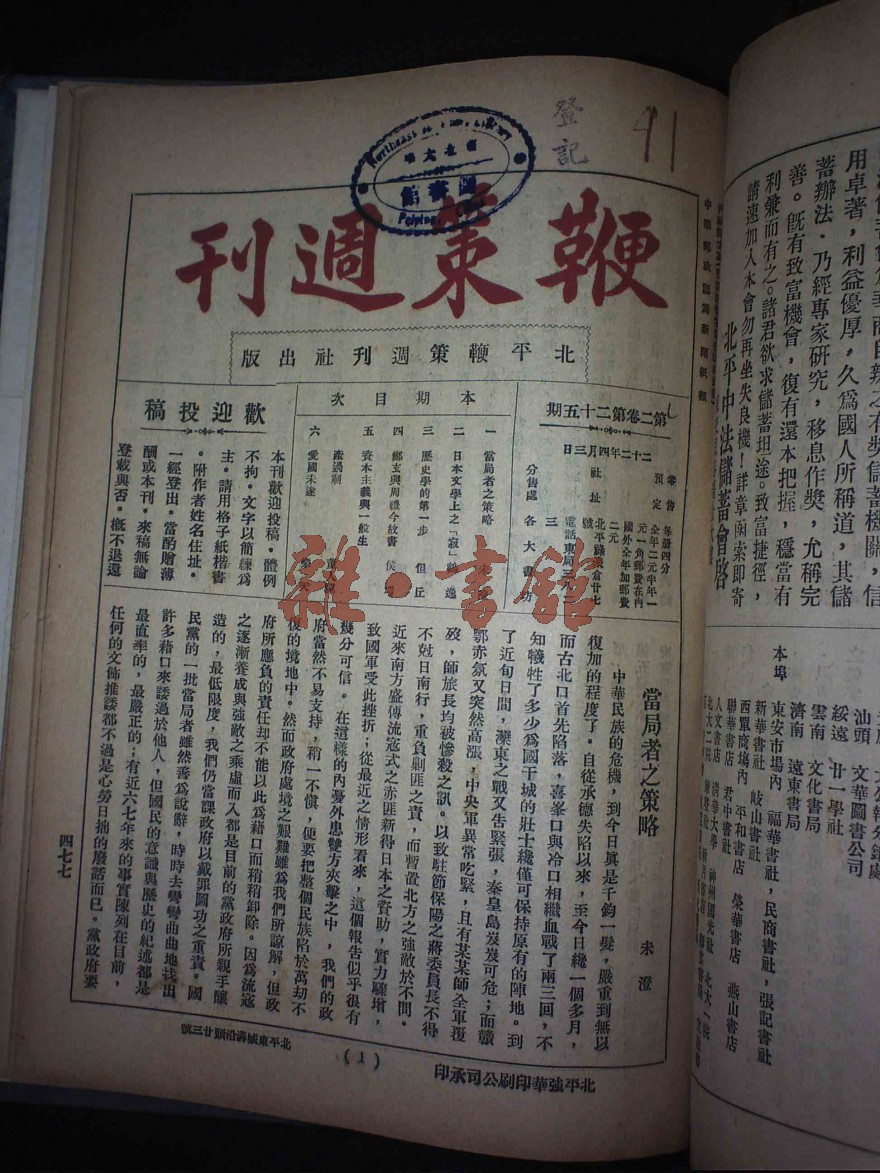 登記
41
Northeast
圖書館
鞭策週刊
北平鞭策週刊社出版
第二卷第二十五期
二十二年四月三日
零售 每册四分
預定 全年二元半年一
元一角郵費在內
國外全年加郵費
二元
社址 北平
電話東局三
分售處 各大書坊
本期目次
一 當局者之策略
二 日本文學上之「寂」
三 歷史學的第一步 但丘
四 鄭玄與周禮今故書
五 資本主義與一般生
產過剩
六 愛國未遂
歡迎投稿
本刊歡迎投稿。體例
不拘。文字以簡練爲
主。請用格子紙楷書
。附作者姓名住址。
一經登出。當酌贈薄
酬或本刊。來稿無論
登載與否。概不退還
當局者之策略
未澄
中華民族的危機，到今日眞是千鈞一髮，嚴重到無以
復加的程度了。自從承德失陷以來，至今日纔一個多月，
而古北口首先陷落，喜峯口與冷口相繼血戰了兩三回，不
知犧牲了多少爲國干城的壯士纔僅可保持原有的陣地。到
了近旬日間，灤東之戰又告緊張，秦皇島岌岌可危；而贛
鄂赤氛又突然高漲，中央軍異常吃緊，且有某某師全軍覆
歿，師旅長均被慘殺之訊。以致駐節保陽之蔣委員長不得
不尅日南行，重負剿匪之責，而暫置北方之強敵於不問。
近來南方盛傳流寇式之赤匪新得日本之資助，實力驟增，
致國軍受此挫折；從最近之情形看來，這個報告似乎很有
幾分可信。在這樣的內憂外患雙方夾擊之中，我們的政
府當然不易支持，稍一不愼，便要把整個民族陷於萬刧不
復的境地中。然而政府處境之艱難雖爲我們所諒解，但政
府所應負的責任却不能以此爲藉口而稍稍卸除。因爲流寇
之逐漸養成與強敵之乘虛而入都是目前的黨政府所親手釀
造的，最低限度，我們仍當課政府以戴罪圖功之重責。國
民黨的一批當局者雖然善爲說辭，時時去彎彎曲曲地找出
許多藉口來諉過於他人，但國民的意識與歷史的紀述都是
最直率的，最嚴正的；有近六七年來的事實陳列在目前，
任何的文飾推諉都不過是心勞日拙的廢話而已。黨政府要
四七七
(1)
北平強華印刷公司承印
北平東城溝沿頭廿三號
雜·書館
中華郵政認爲新聞紙類
用卓著，利益優厚，久爲國人所稱道，其儲
蓄辦法．乃經專家研究，移息作獎，允稱完
善。旣有致富機會，復有還本把握，穩當有
利兼而有之。諸君欲求儲蓄坦途。致富捷徑，
請速加入本會勿再坐失良機！詳章函索即寄
北平中法儲蓄會啓
汕頭 文華圖書公司
綏遠 廿一學社
雲南 文化書局
濟南 遠東書局
本埠
東安市場內 福華書社，民商書社，張記書社
新華書社 岐山書店
西單商場內 平和書店 榮華書店 燕山書店
聯華書店 君中書社
人文書店 清華大學 神州國光社 北大一院
北大二院